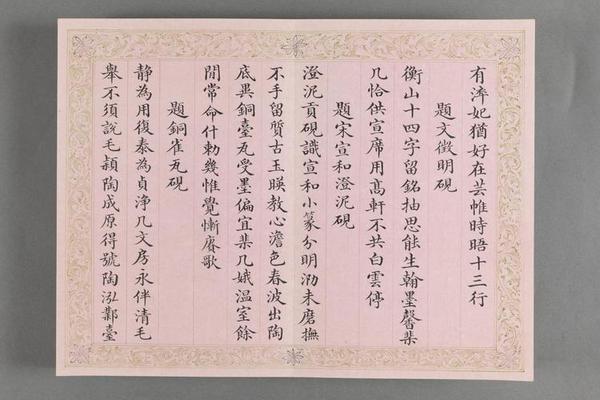 有洋妃猶好在芸帷時晤十三行
題文徵明硯
衡山十四字留銘抽思能生翰墨馨棐
几恰供宣席用高軒不共白雲停
題宋宣和澄泥硯
澄泥貢硯識宣和小篆分明泐未磨撫
不手留質古玉暎教心澹色春波出陶
底異銅臺瓦受墨偏宜棐几娥温室餘
閒常命什勅幾惟覺慚賡歌
題銅雀瓦硯
静為用復泰為貞浄几文房永伴清毛
舉不須說毛穎陶成原得號陶泓鄴臺